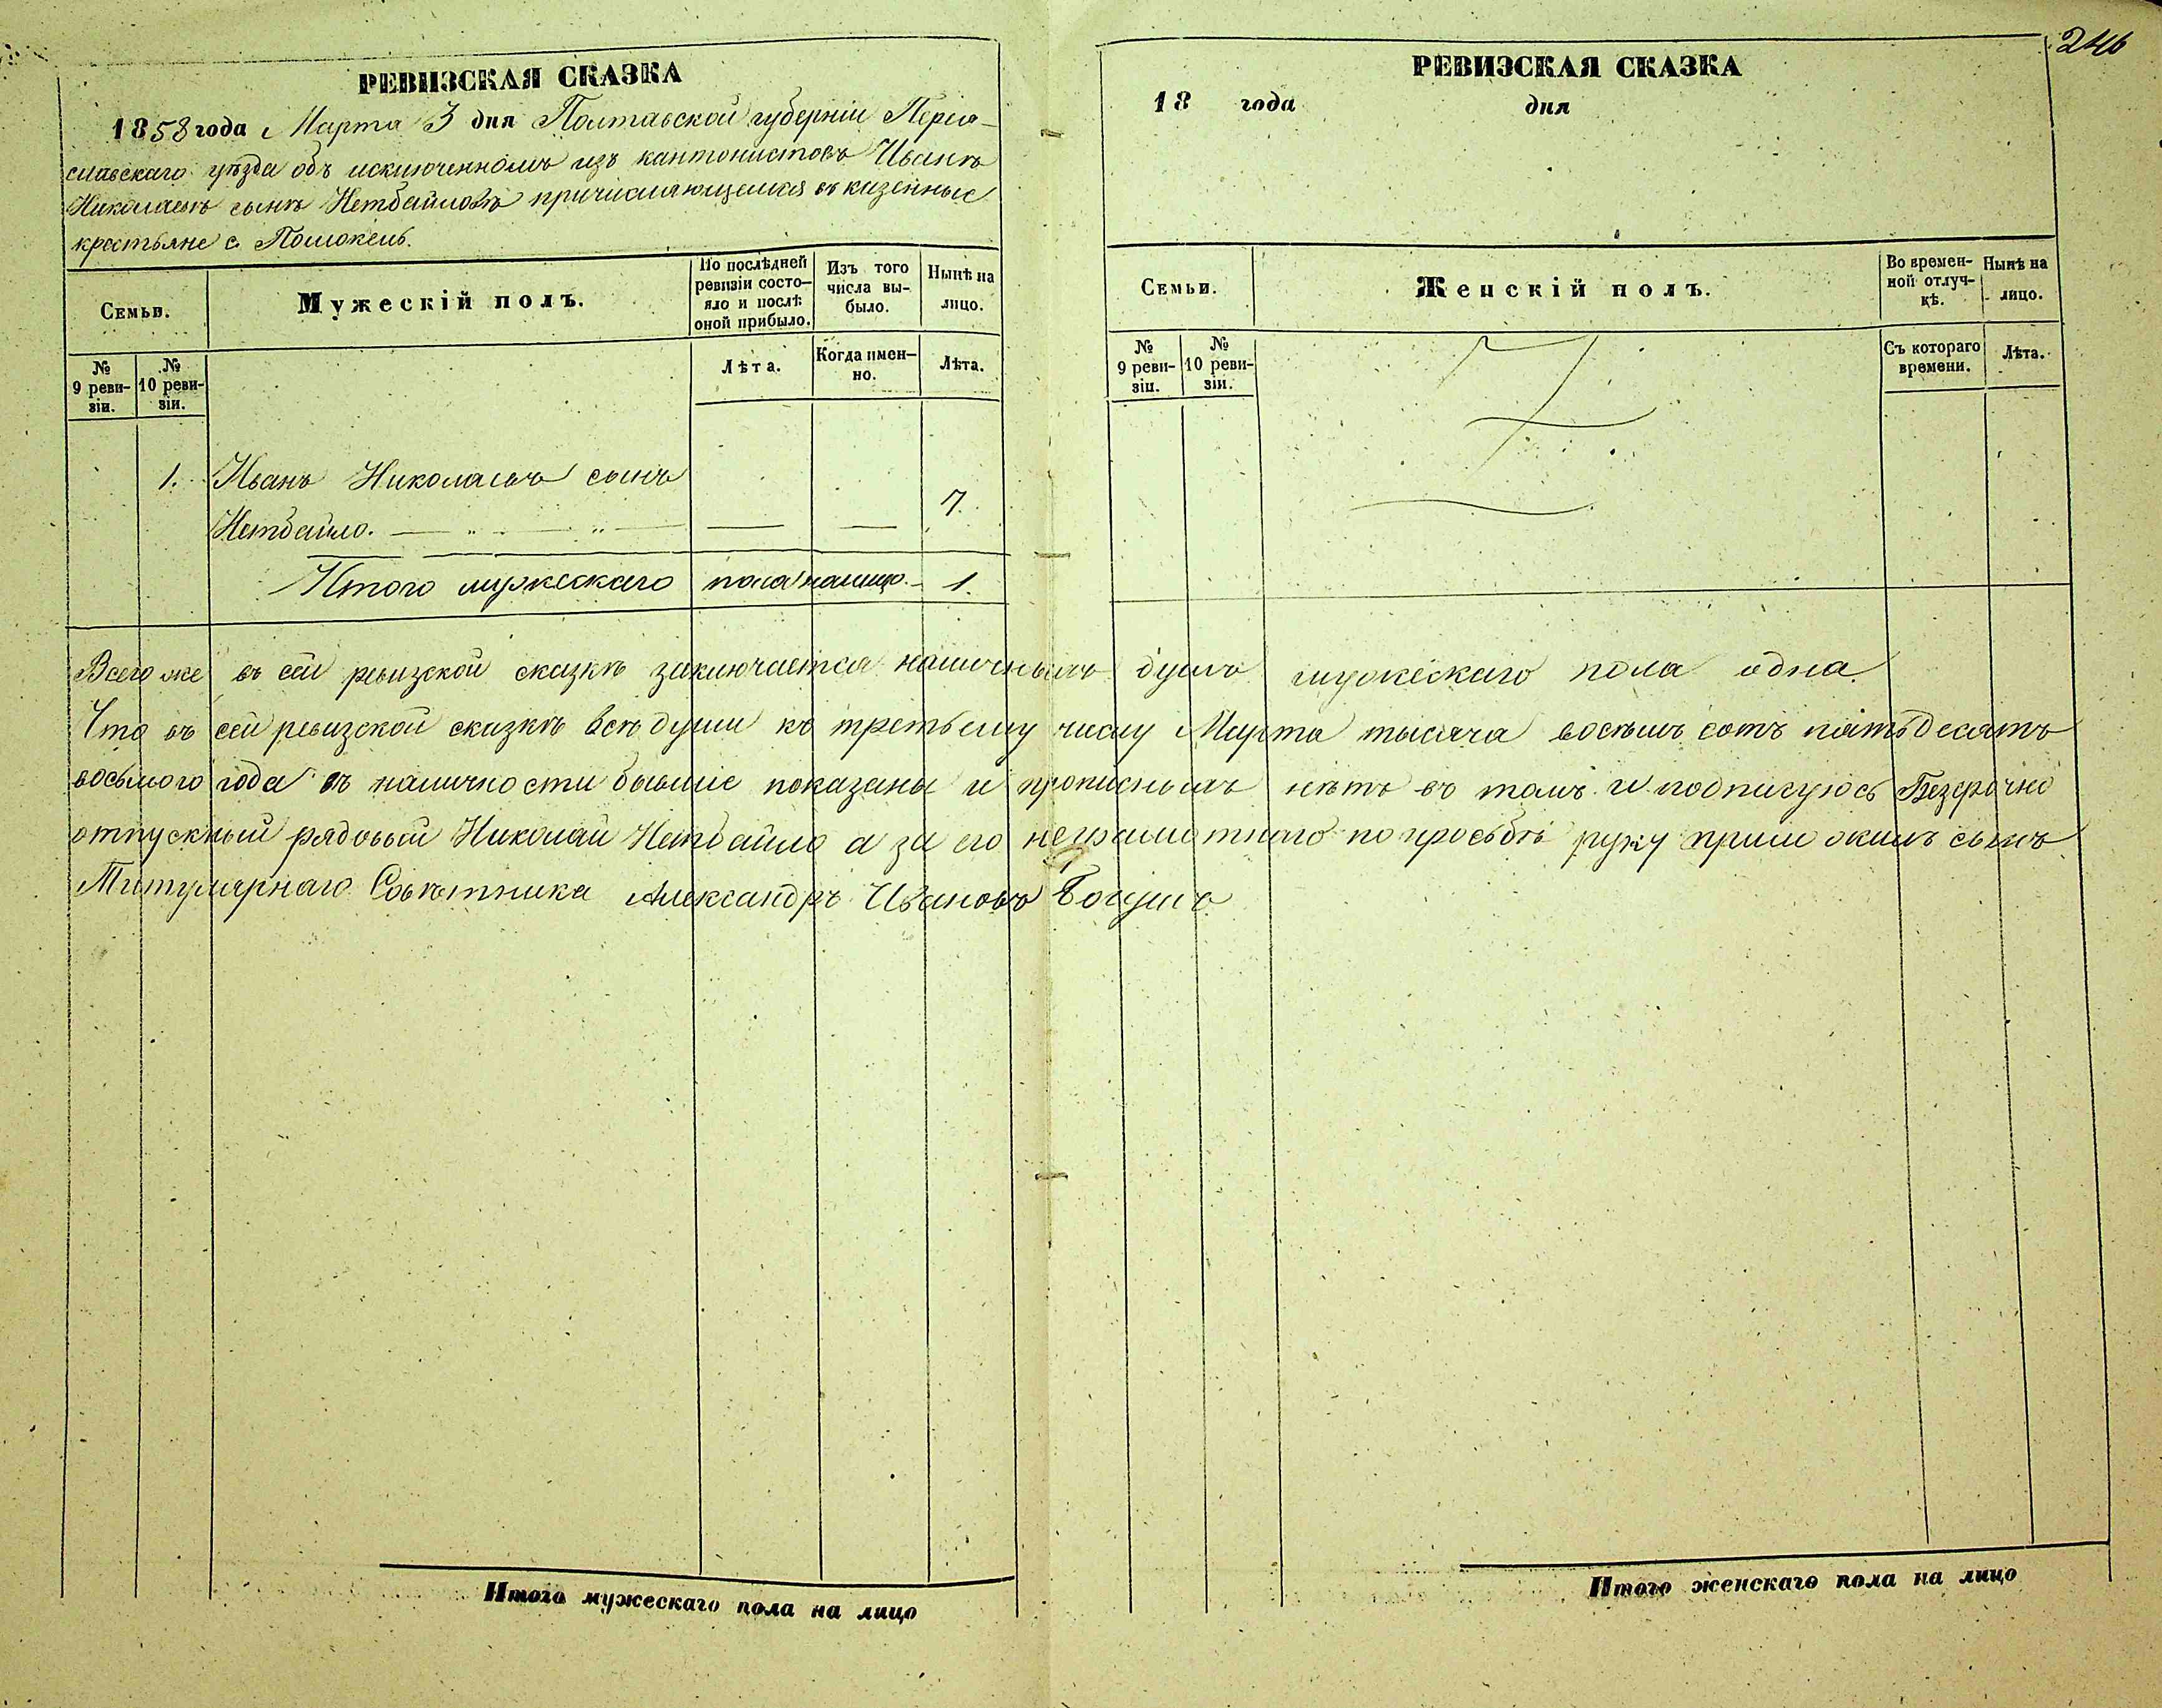 246
РЕВИЗСКАЯ СКАЗКА
1858 года Марта 3 дня Полтавской губерніи Перея-
славскаго уѣзда объ исключенномъ изъ кантонистовъ Иванѣ
Николаевѣ сынѣ Нетбайловѣ причисляющемся въ казенные
крестьяне с.
Семьи.
Мужескій полъ.
По послѣдней
ревизіи состо-
яло и послѣ
оной прибыло.
Изъ того
числа вы-
было.
Нынѣ на
лицо.
№
9 реви-
зіи.
№
10 реви-
зіи.
Лѣта.
Когда имен-
но.
Лѣта.
1. Иванъ Николаевъ сынъ
Нетбайло. 7.
Итого мужескаго пола налицо 1.
РЕВИЗСКАЯ СКАЗКА
18 года дня
Семьи.
Женскій полъ.
Во времен-
ной отлуч-
кѣ.
Нынѣ на
лицо.
№
9 реви-
зіи.
№
10 реви-
зіи.
Съ котораго
времени.
Лѣта.
Всего же въ сей ревизской сказкѣ заключается наличныхъ душъ мужескаго пола одна.
Что въ сей ревизской сказкѣ всѣ души къ третьему числу Марта тысяча восемь сотъ пятьдесятъ
восьмого года въ наличности бывшіе показаны и прописныхъ нѣтъ въ томъ и подписуюсь Безсрочно
отпускный рядовый Николай Нетбайло а за его неграмотнаго по просьбѣ руку приложилъ сынъ
Титулярнаго Совѣтника Александръ Ивановъ
Итого мужескаго пола на лицо
Итого женскаго пола на лицо